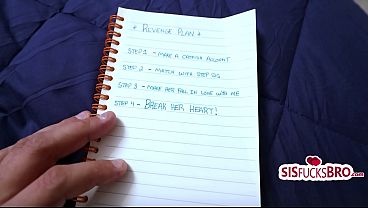 * REVENGE PLAN *
STEP 1 - MAKE A CATFISH ACCOUNT
STEP 2 - MATCH WITH STEP SIS
STEP 3 - MAKE HER FALL IN LOVE WITH ME
STEP 4 - BREAK HER HEART!
SISFUCKSBRO.com